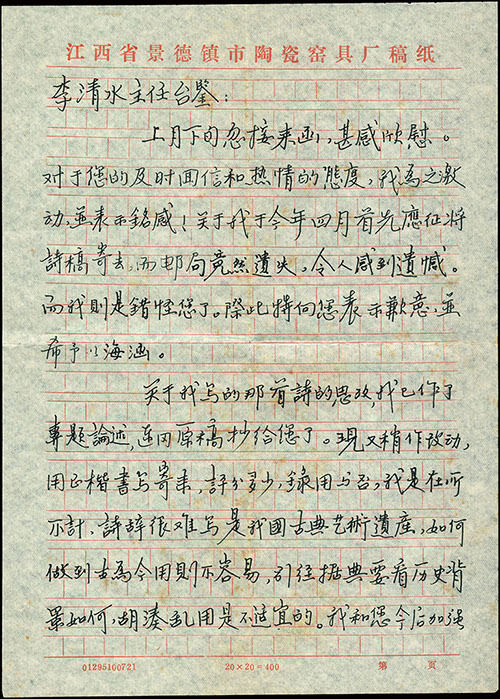 江西省景德镇市陶瓷窑具厂稿纸
李清水主任台鑒：
上月下旬忽接来函，甚感欣慰。
对于您的及时回信和热情的態度，我為之激
动，並表示銘感！关于我于今年四月首先應征将
詩稿寄去，而邮局竟然遺失，令人感到遺憾。
而我則是錯怪您了。際此特向您表示歉意，並
希予以海涵。
关于我写的那首詩的思改，我已作了
專題論述，連同原稿抄给您了。現又稍作改动，
用正楷書写寄来，評分多少，錄用与否，我是在所
不計，詩辞很难写是我國古典艺術遺産，如何
做到古為今用則不容易，引経据典要看历史背
景如何，胡湊乱用是不适宜的。我和您今后加強
01295100721
20×20=400
第 页